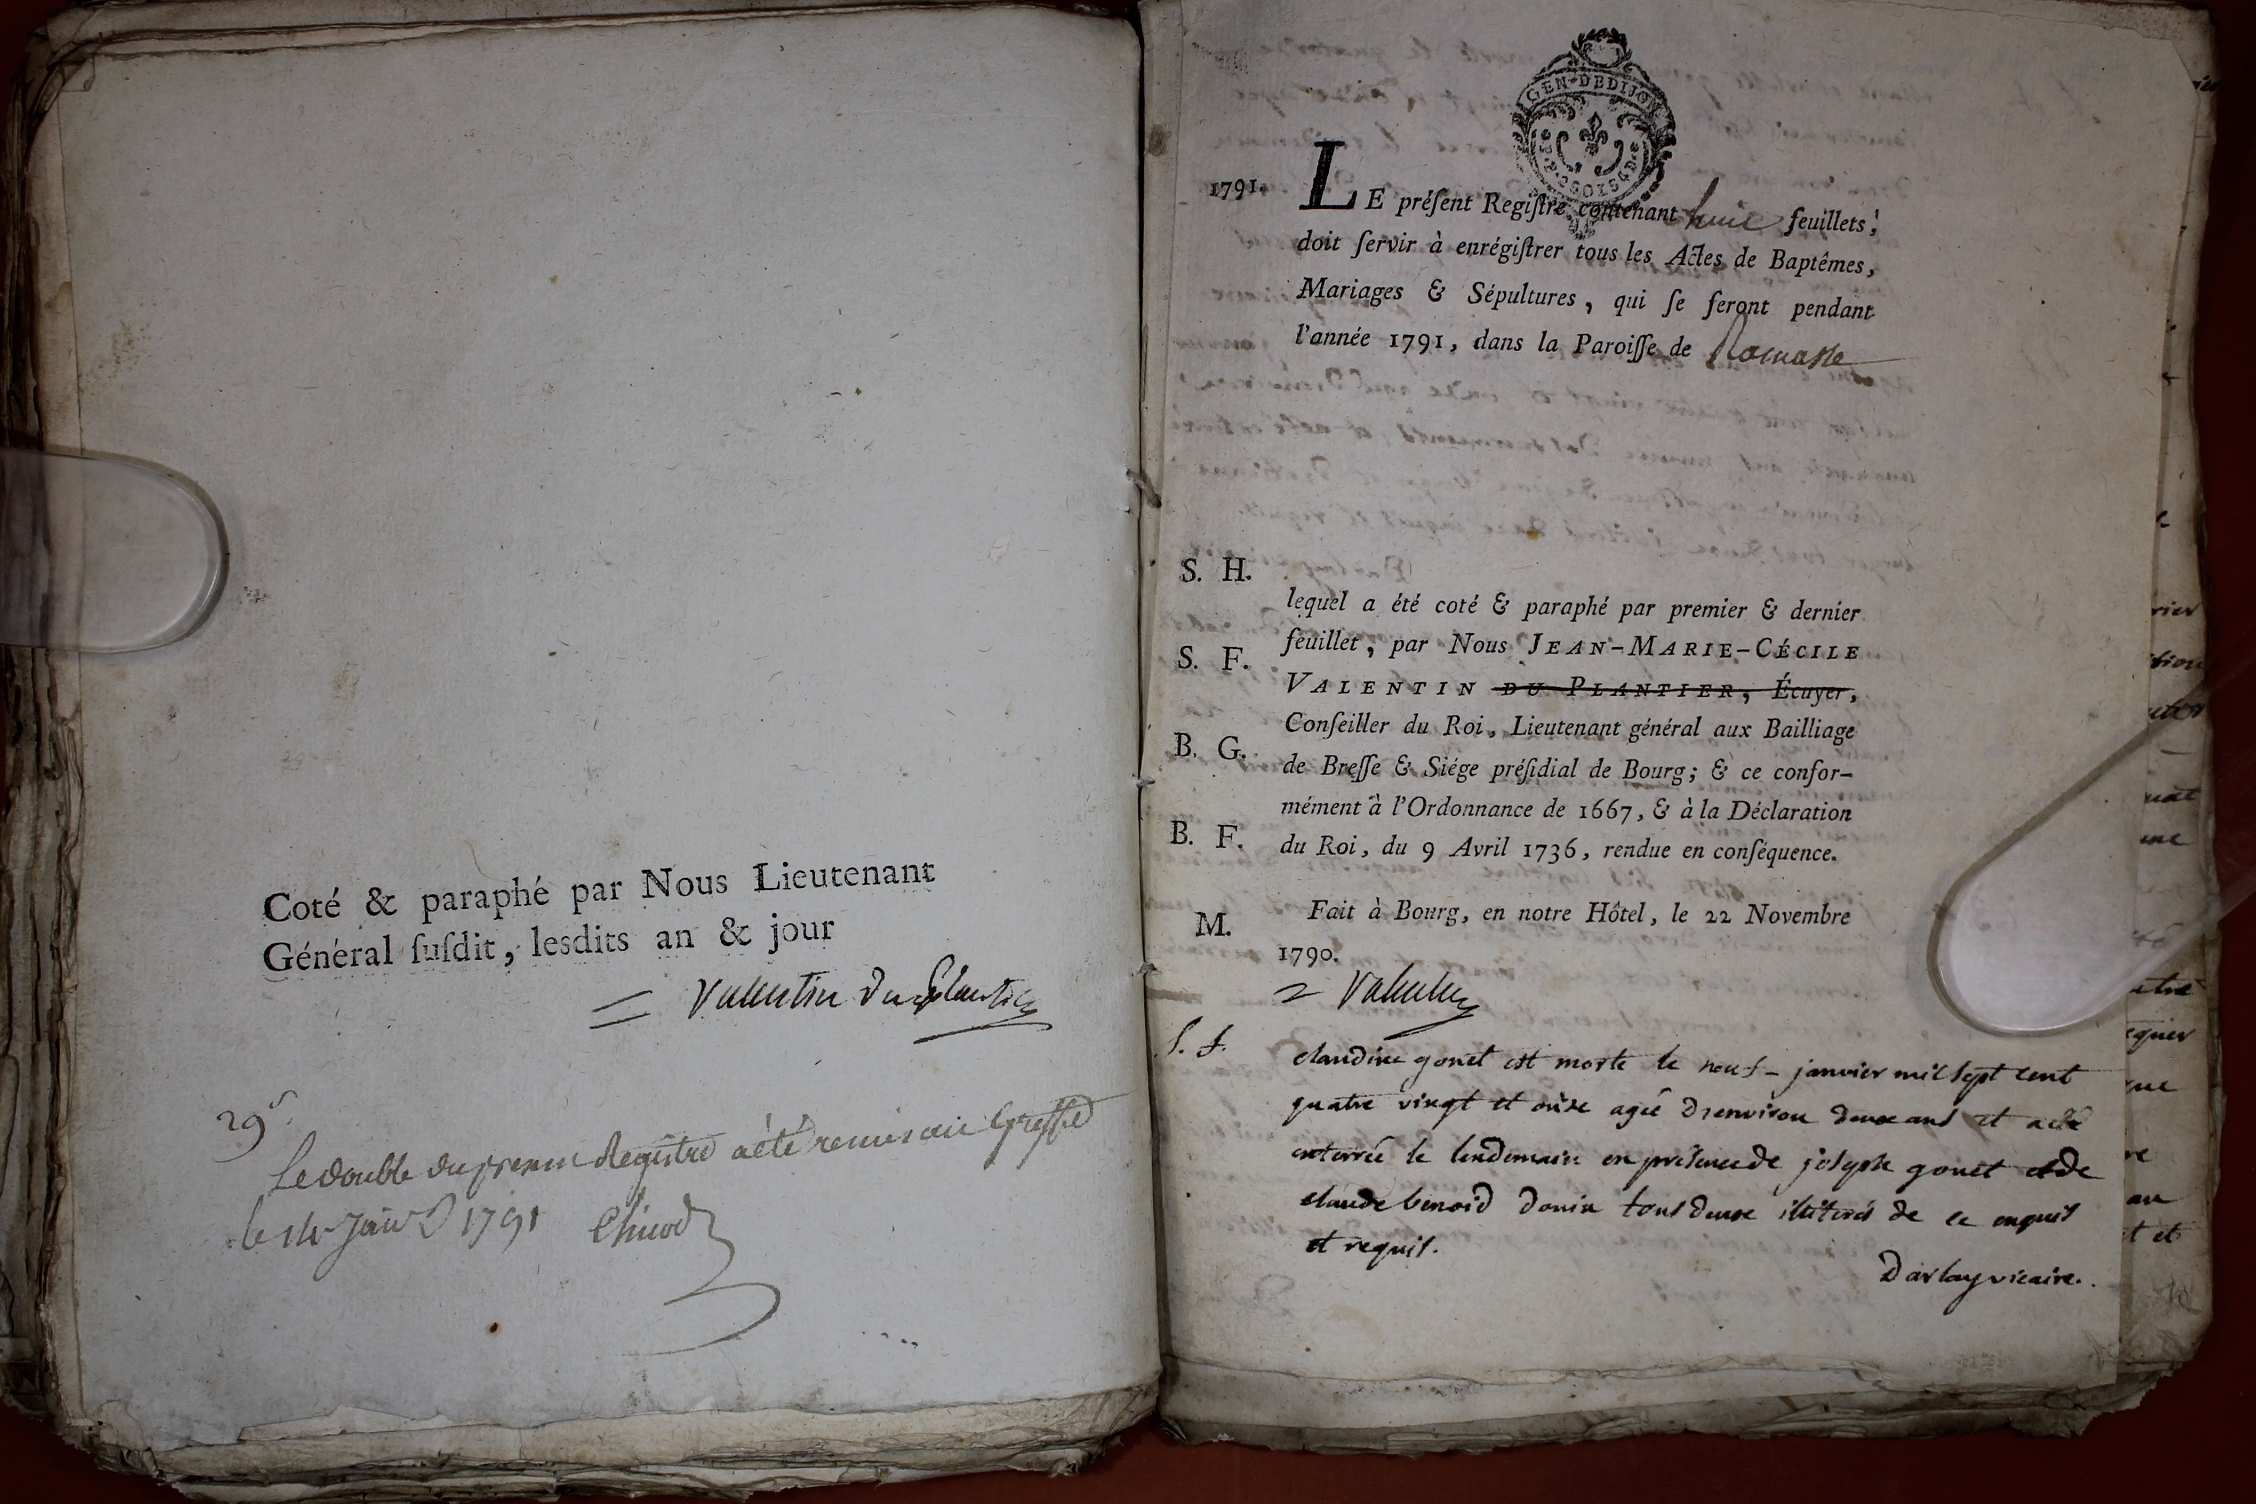 Coté & paraphé par Nous Lieutenant
Général ſuſdit, lesdits an & jour
Valentin du Plantier
29
Le double du present Registre a été remis au Greffe
le 14 Janv 1791
GEN·DEDIJON
1791.
LE préſent Regiſtre contenant huit feuillets,
doit ſervir à enrégiſtrer tous les Actes de Baptêmes,
Mariages & Sépultures, qui ſe feront pendant
l'année 1791, dans la Paroiſſe de Ramasse
S. H.
lequel a été coté & paraphé par premier & dernier
feuillet, par Nous JEAN-MARIE-CÉCILE
S. F.
VALENTIN DU PLANTIER, Écuyer,
Conſeiller du Roi, Lieutenant général aux Bailliage
B. G.
de Breſſe & Siége préſidial de Bourg; & ce confor-
mément à l'Ordonnance de 1667, & à la Déclaration
B. F.
du Roi, du 9 Avril 1736, rendue en conſéquence.
M.
Fait à Bourg, en notre Hôtel, le 22 Novembre
1790.
Valentin
S. f.
claudine gonet est morte le neuf janvier mil sept cent
quatre vingt et onze agée d'environ deux ans et a été
enterrée le lendemain en présence de joseph gonet et de
claude benoid donin tous deux illiterés de ce enquis
et requis.
Darlay vicaire.